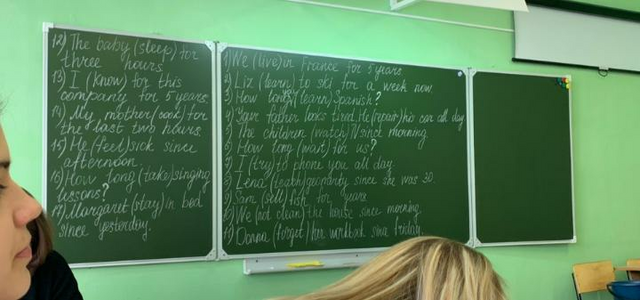 12) The baby (sleep) for
three hours
13) I (know) for this
company for 5 years
14) My mother (cook) for
the last two hours
15) He (feel) sick since
afternoon
16) How long (take) singing
lessons?
17) Margaret (stay) in bed
since yesterday.
1) We (live) in France for 5 years
2) Liz (learn) to ski for a week now.
3) How long (learn) Spanish?
4) Your father looks tired. He (repair) his car all day.
5) The children (watch) TV since morning.
6) How long (wait) for us?
7) I (try) to phone you all day
8) Lena (teach) geography since she was 30.
9) Sam (sell) fish for years
10) We (not clean) the house since morning
11) Donna (forget) her workbook since friday